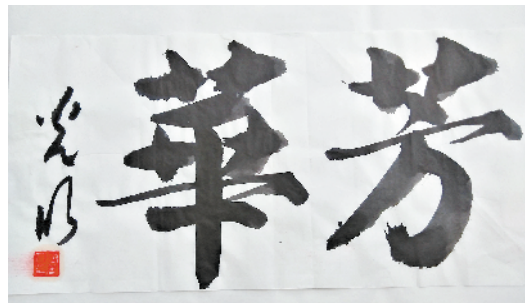 芳華
光明